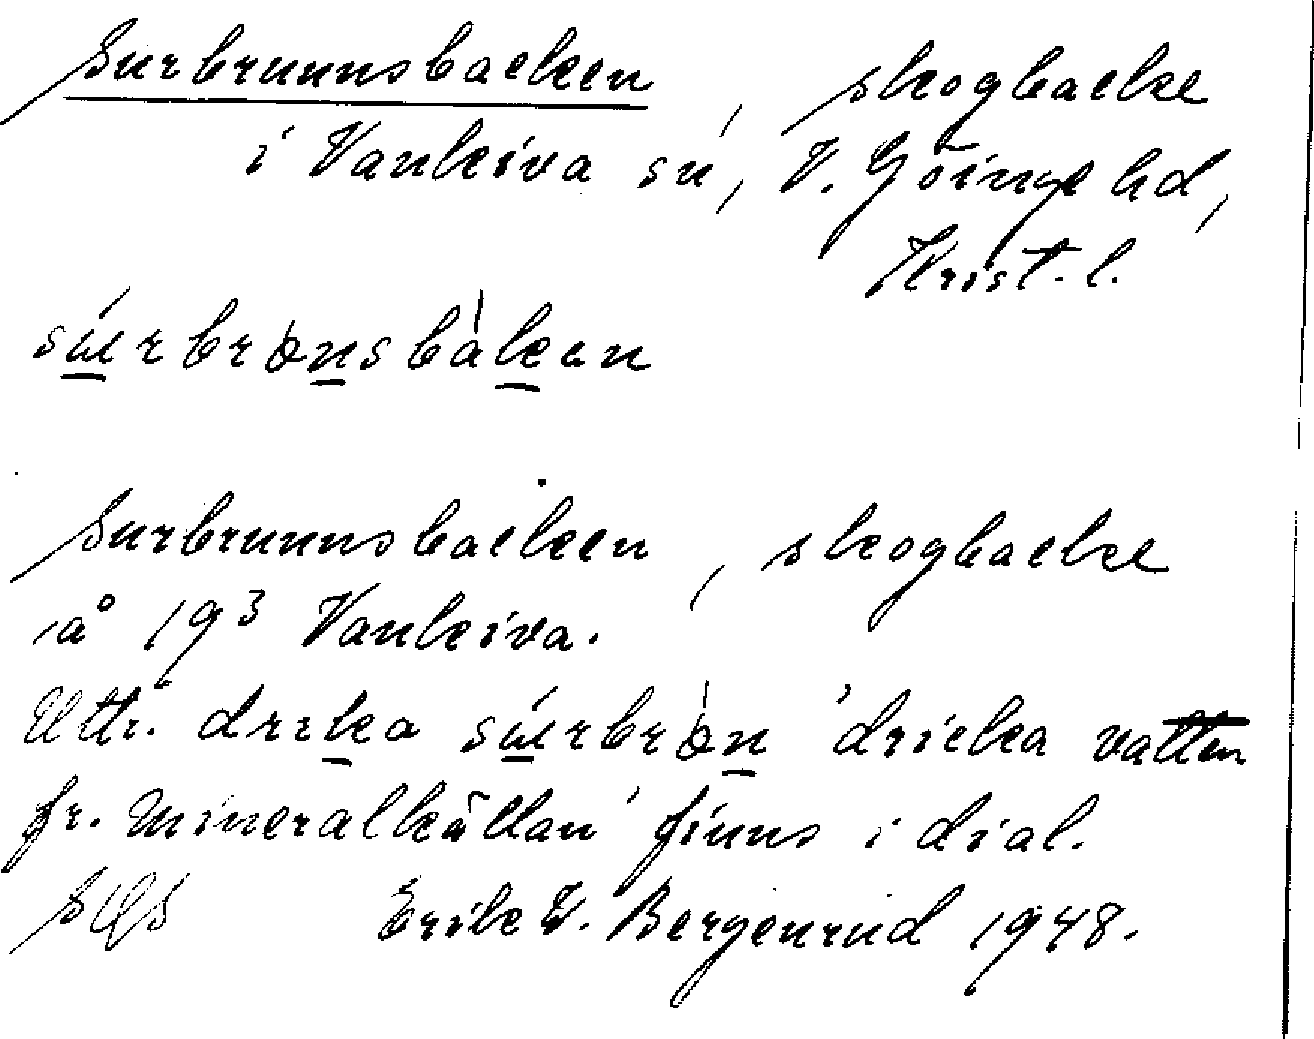 Surbrunnsbaecken, skogbaeck
i Vankiva sn, V. Göinge hd,
Krist. l.
súrbrònsbàkan
Surbrunnsbaecken, skogbaeck
å 19³ Vankiva.
Uttr. drika súrbròn 'dricka vatten
fr. mineralkällan' finns i dial.
Erik W. Bergenrud 1948.